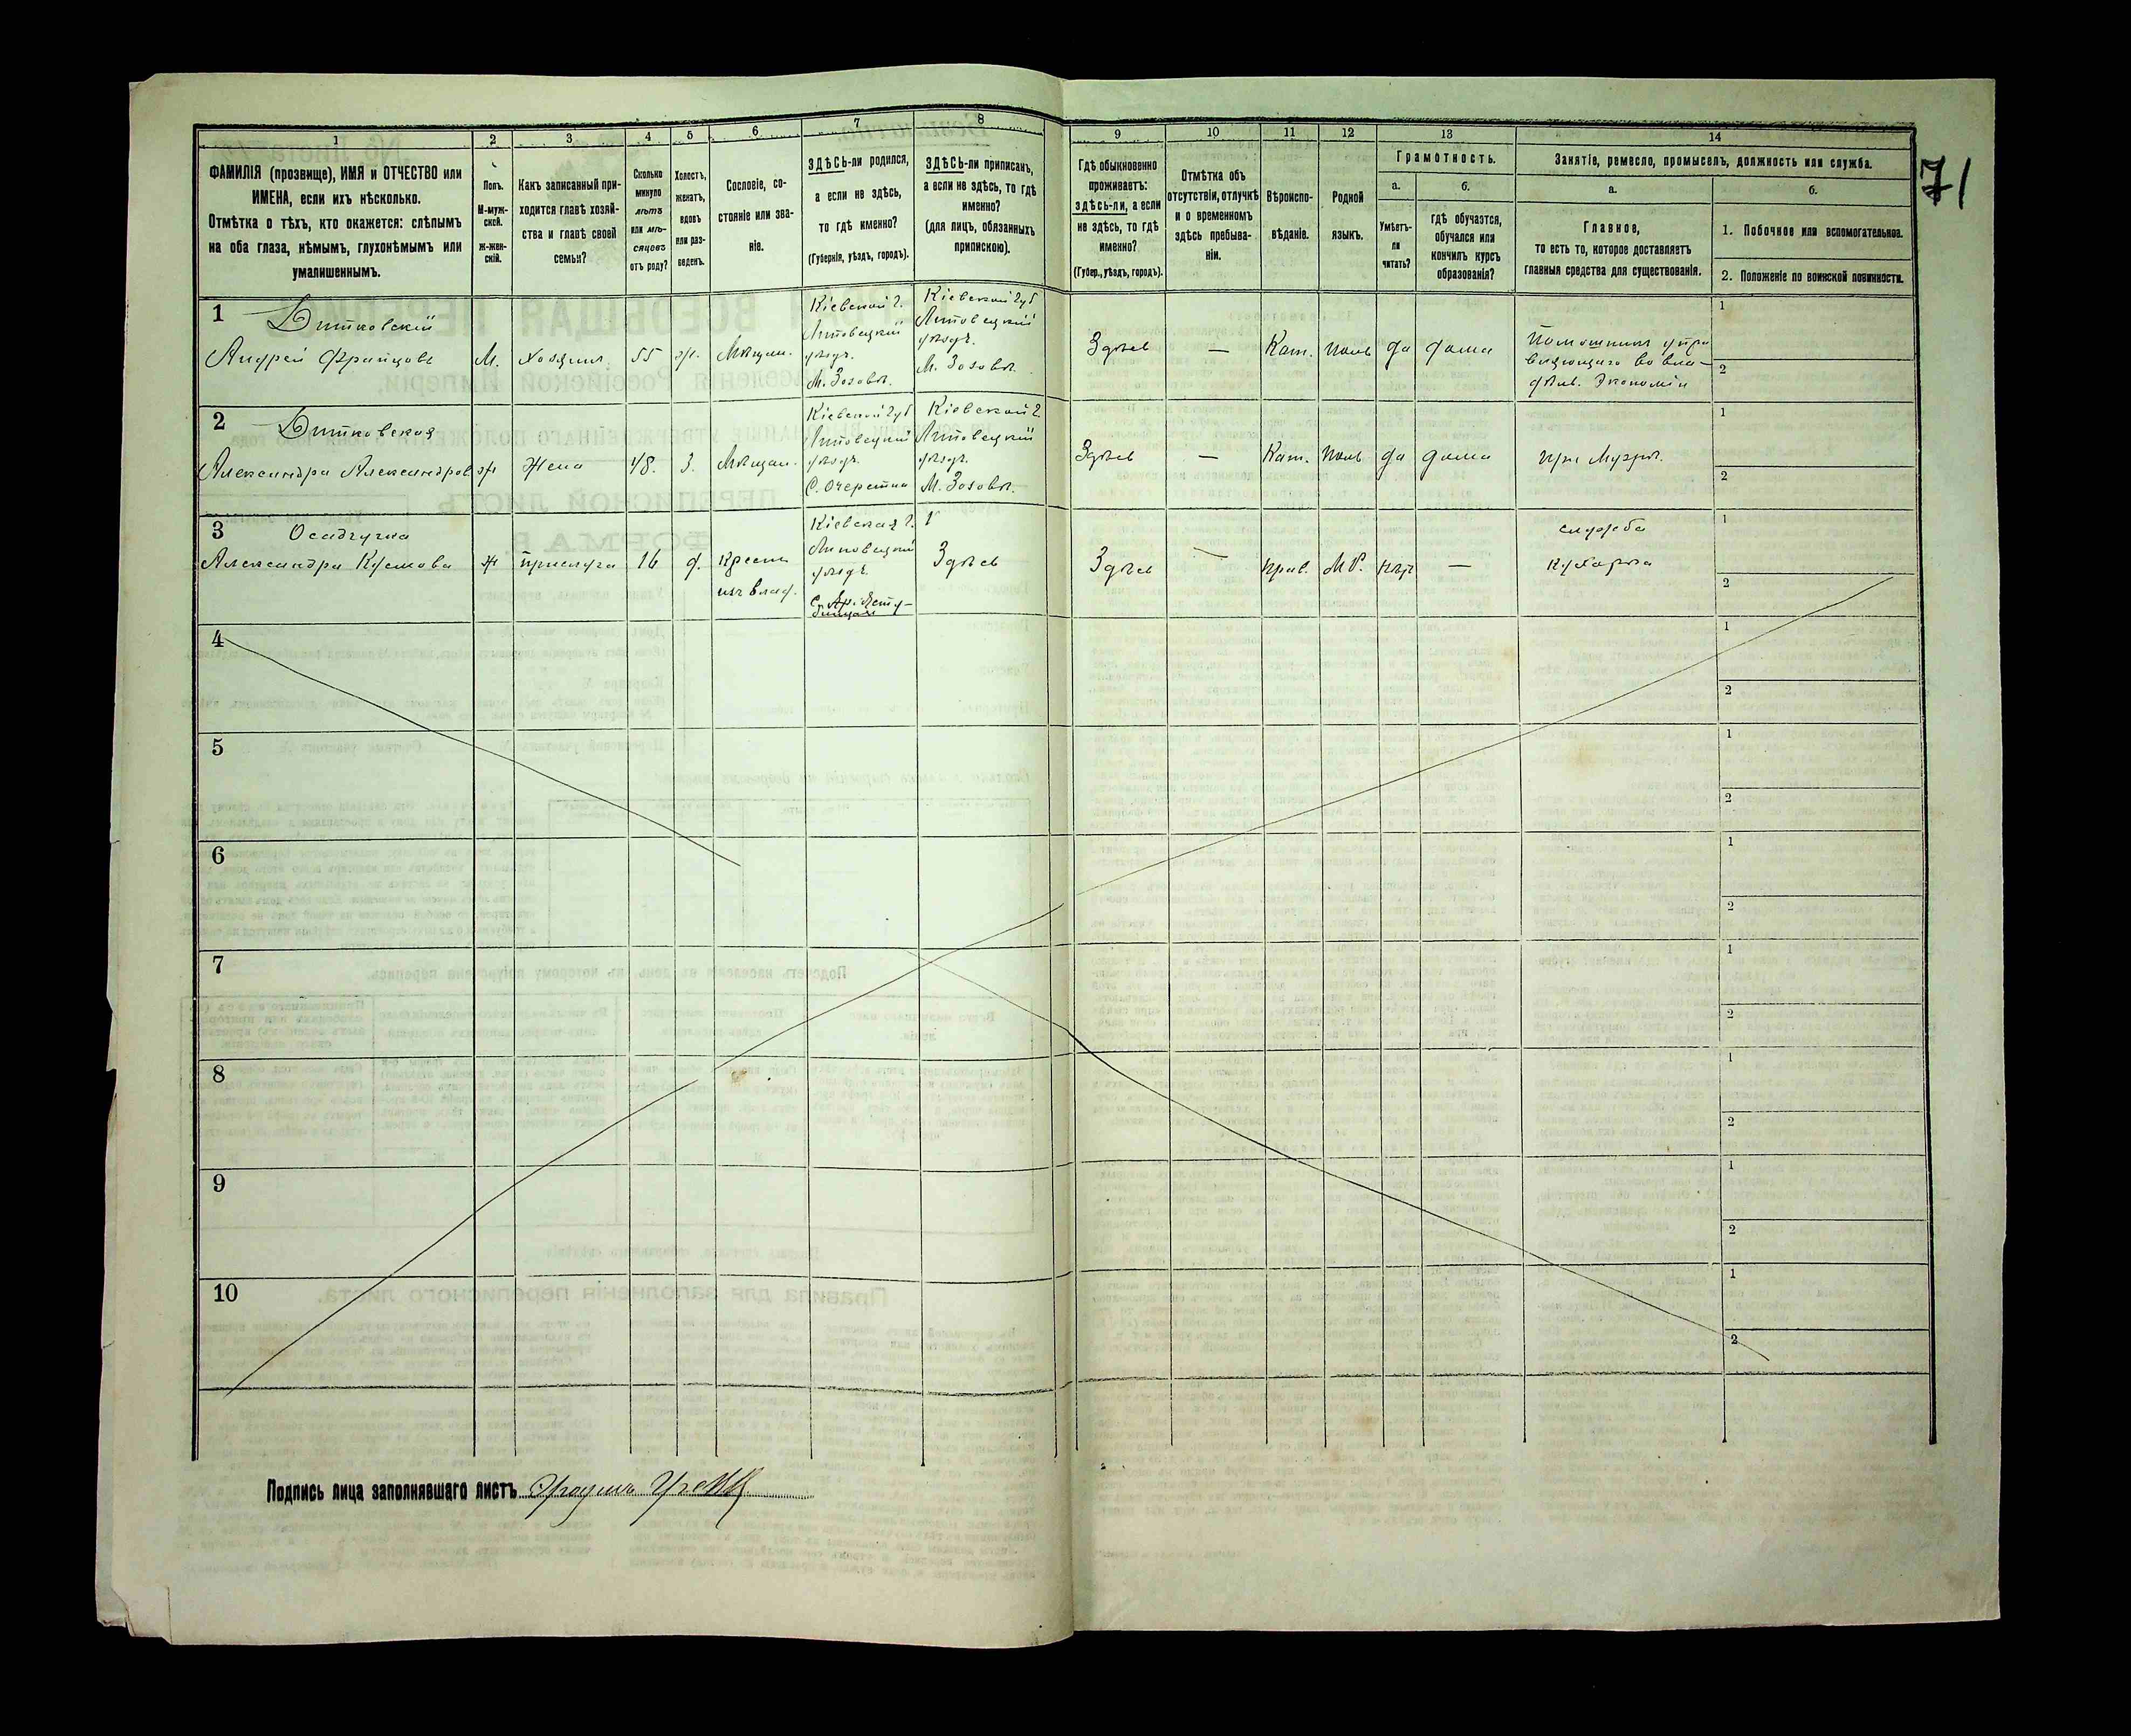 1 2 3 4 5 6 7 8 9 10 11 12 13 14
ФАМИЛІЯ (прозвище), ИМЯ и ОТЧЕСТВО или
ИМЕНА, если ихъ нѣсколько.
Отмѣтка о тѣхъ, кто окажется: слѣпымъ
на оба глаза, нѣмымъ, глухонѣмымъ или
умалишеннымъ.
Полъ.
М-муж-
ской.
ж-жен-
скій.
Какъ записанный при-
ходится главѣ хозяй-
ства и главѣ своей
семьи?
Сколько
минуло
лѣтъ
или мѣ-
сяцевъ
отъ роду?
Холостъ,
женатъ,
вдовъ
или раз-
веденъ.
Сословіе, со-
стояніе или зва-
ніе.
ЗДѢСЬ-ли родился,
а если не здѣсь,
то гдѣ именно?
(Губернія, уѣздъ, городъ).
ЗДѢСЬ-ли приписанъ,
а если не здѣсь, то гдѣ
именно?
(для лицъ, обязанныхъ
припискою).
Гдѣ обыкновенно
проживаетъ:
здѣсь-ли, а если
не здѣсь, то гдѣ
именно?
(Губер., уѣздъ, городъ).
Отмѣтка объ
отсутствіи, отлучкѣ
и о временномъ
здѣсь пребыва-
ніи.
Вѣроиспо-
вѣданіе.
Родной
языкъ.
Грамотность.
а.
Умѣетъ-
ли
читать?
б.
гдѣ обучается,
обучался или
кончилъ курсъ
образованія?
Занятіе, ремесло, промыселъ, должность или служба.
а.
Главное,
то есть то, которое доставляетъ
главныя средства для существованія.
б.
1. Побочное или вспомогательное.
2. Положеніе по воинской повинности.
71
1
Витковскій
Андрей Францовъ
М.
Хозяинъ
55
ж.
Мѣщан.
Кіевской г.
Липовецкій
уѣздъ.
М. Зозовъ.
Кіевской губ
Липовецкій
уѣздъ.
М. Зозовъ.
Здѣсь
—
Кат.
Поль
да
дома
Помошникъ упра
вляющаго во вла-
дѣл. Экономіи
1
2
2
Витковская
Александра Александров.
ж
Жена
48.
З.
Мѣщан.
Кіевской губ
Липовецкій
уѣздъ.
С. Очеретна
Кіевской г.
Липовецкій
уѣздъ.
М. Зозовъ.
Здѣсь
—
Кат.
Поль
да
дома
при Мужѣ.
1
2
3
Осадчучка
Александра
ж
прислуга
16
д.
Крестъ
изъ влад.
Кіевская г.
Липовецкій
уѣздъ.
Здѣсь
Здѣсь
—
Прав.
МР.
нѣт
—
служба
Кухарка
1
2
4
1
2
5
1
2
6
1
2
7
1
2
8
1
2
9
1
2
10
1
2
Подпись лица заполнявшаго листъ